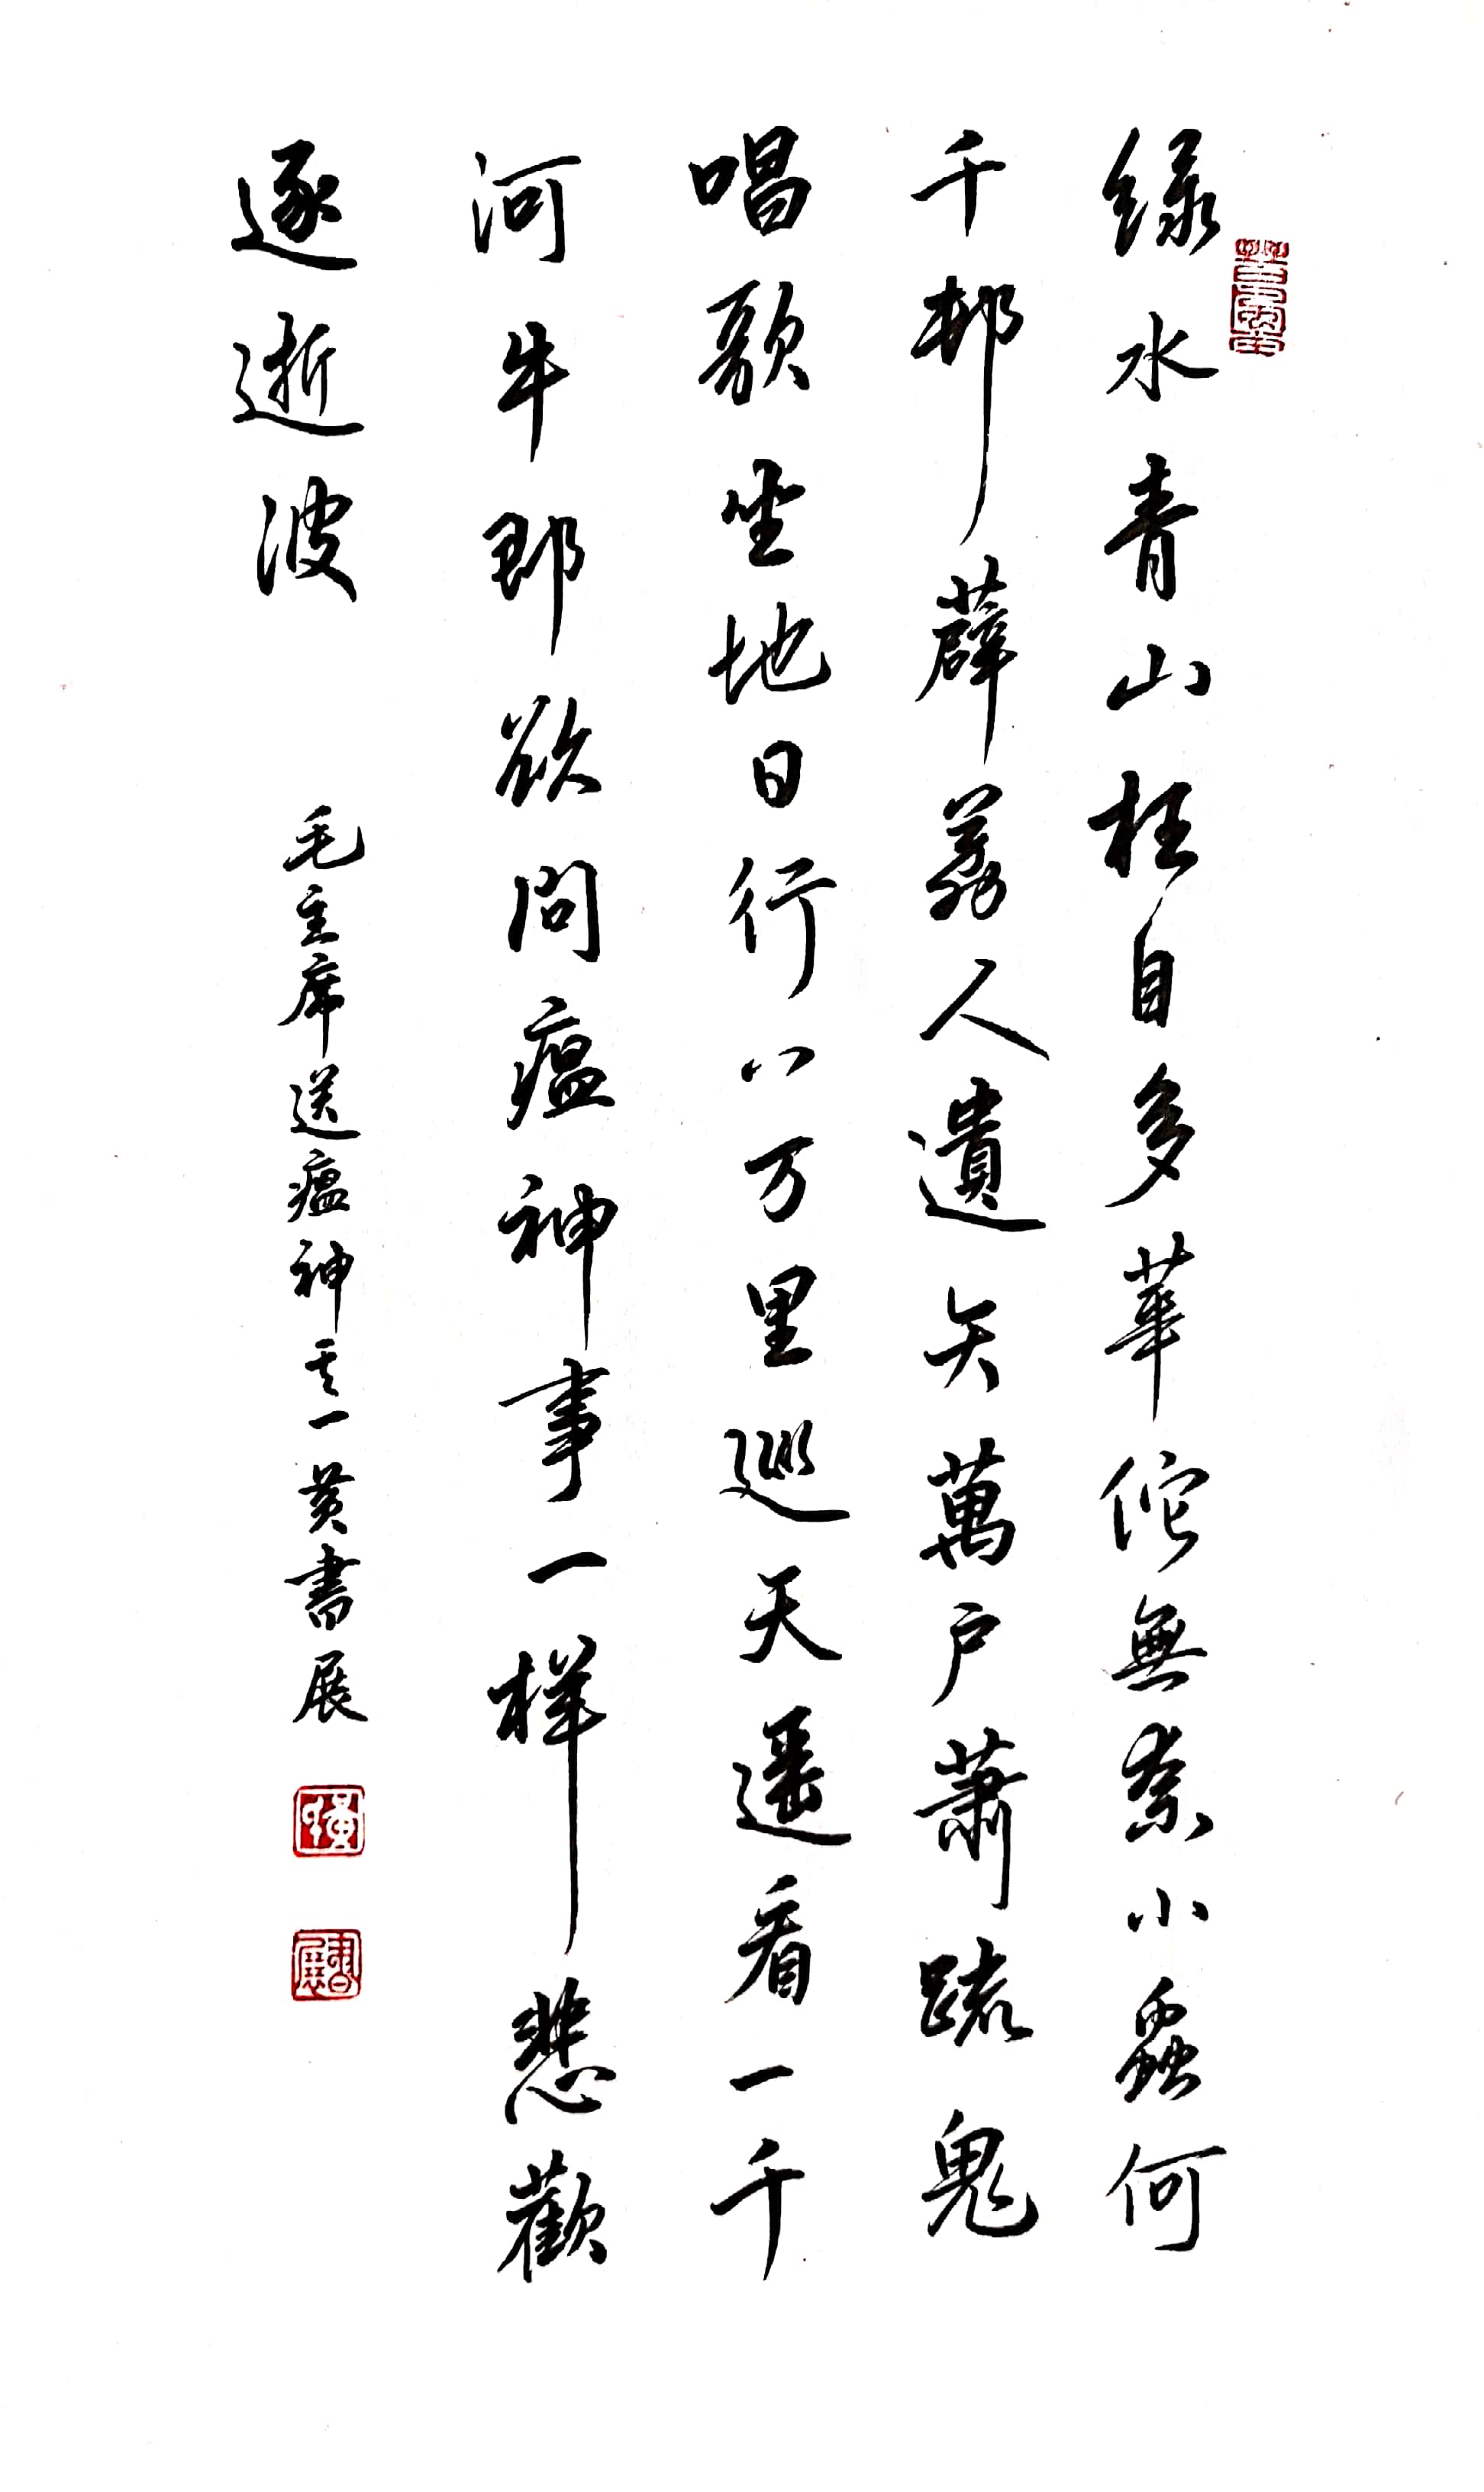 绿水青山枉自多華佗無奈小蟲何
千邨薜荔人遺矢萬户蕭疏鬼
唱歌坐地日行八万里巡天遥看一千
河牛郎欲問瘟神事一样悲歡
逐逝波
毛主席送瘟神之一黄書展